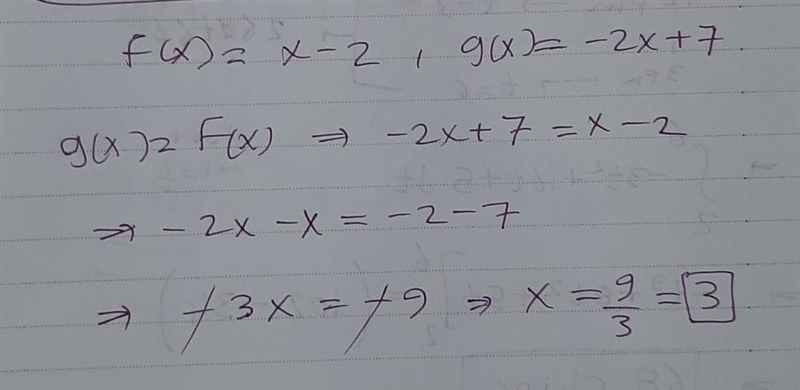 f(x) = x - 2 , g(x) = -2x + 7
g(x) = f(x) ⇒ -2x + 7 = x - 2
⇒ -2x - x = -2 - 7
⇒ -3x = -9 ⇒ x = 9/3 = 3